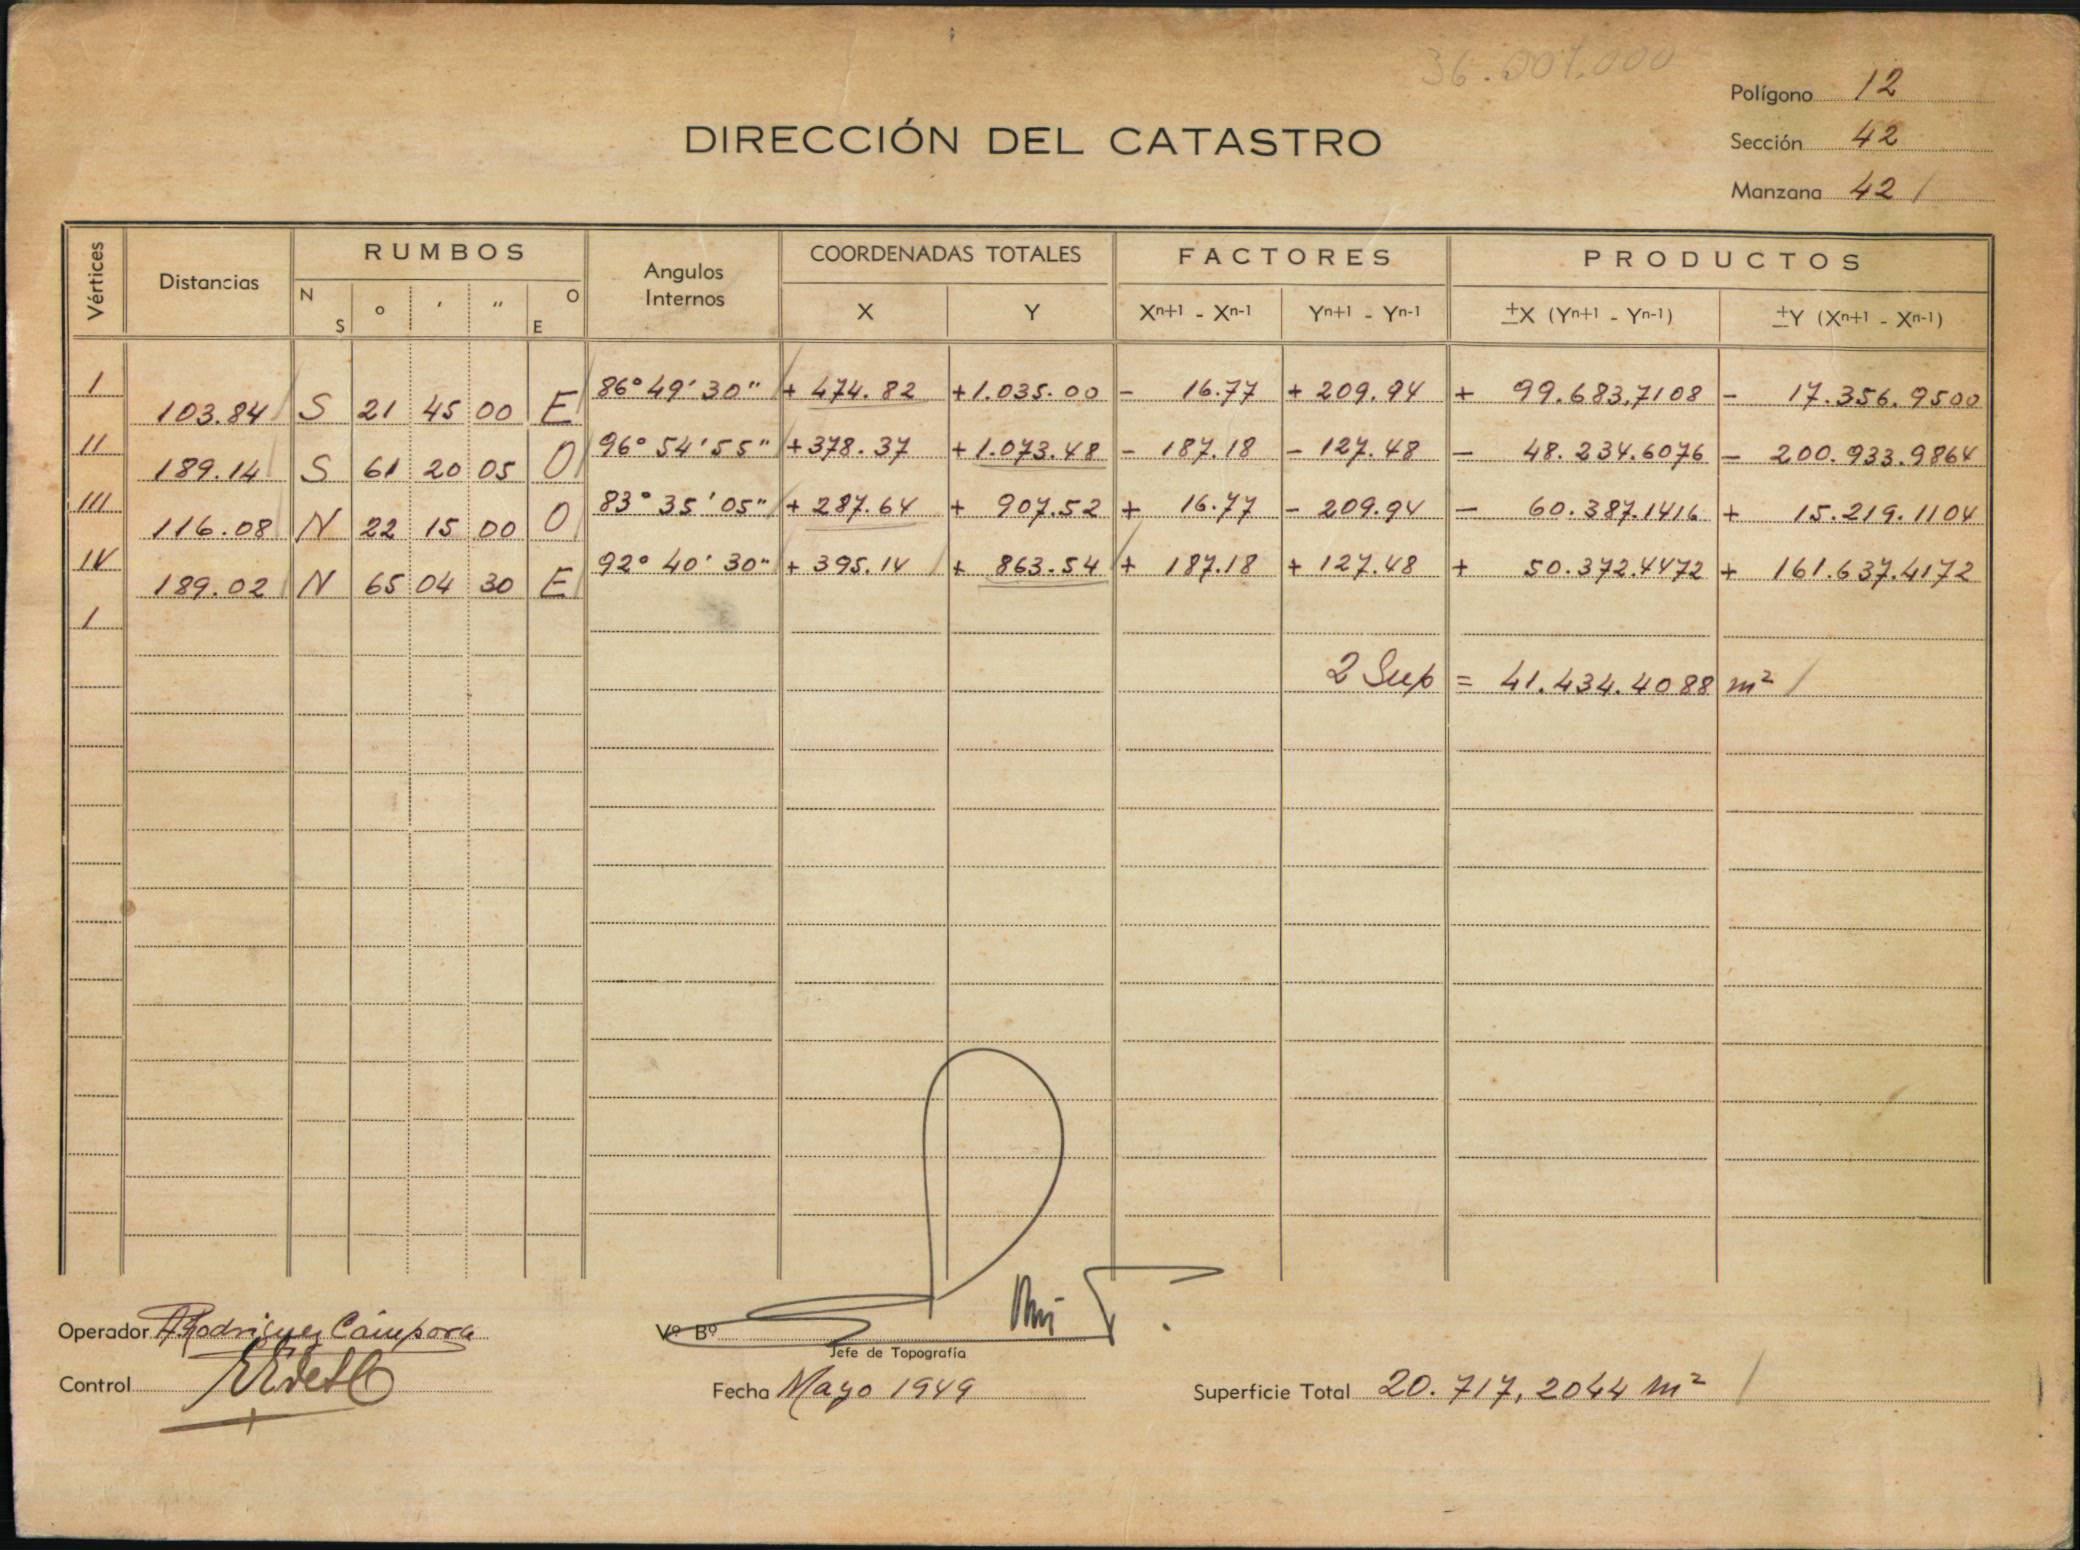 36.001.000
Polígono 12
DIRECCIÓN DEL CATASTRO
Sección 42
Manzana 42 /
Vértices Distancias RUMBOS Angulos Internos COORDENADAS TOTALES FACTORES PRODUCTOS
N S ° ' " O E X Y Xn+1 - Xn-1 Yn+1 - Yn-1 ±X (Yn+1 - Yn-1) ±Y (Xn+1 - Xn-1)
I 86° 49' 30" + 474.82 + 1.035.00 - 16.77 + 209.94 + 99.683,7108 - 17.356.9500
103.84 S 21 45 00 E
II 96° 54' 55" + 378.37 + 1.073.48 - 187.18 - 127.48 - 48.234.6076 - 200.933.9864
189.14 S 61 20 05 O
III 83° 35' 05" + 287.64 + 907.52 + 16.77 - 209.94 - 60.387.1416 + 15.219.1104
116.08 N 22 15 00 O
IV 92° 40' 30" + 395.14 + 863.54 + 187.18 + 127.48 + 50.372.4472 + 161.637.4172
189.02 N 65 04 30 E
I
2 Sup = 41.434.4088 m² /
Operador Rodriguez Cámpora
Vº Bº
Jefe de Topografía
Control
Fecha Mayo 1949
Superficie Total 20.717,2044 m² /